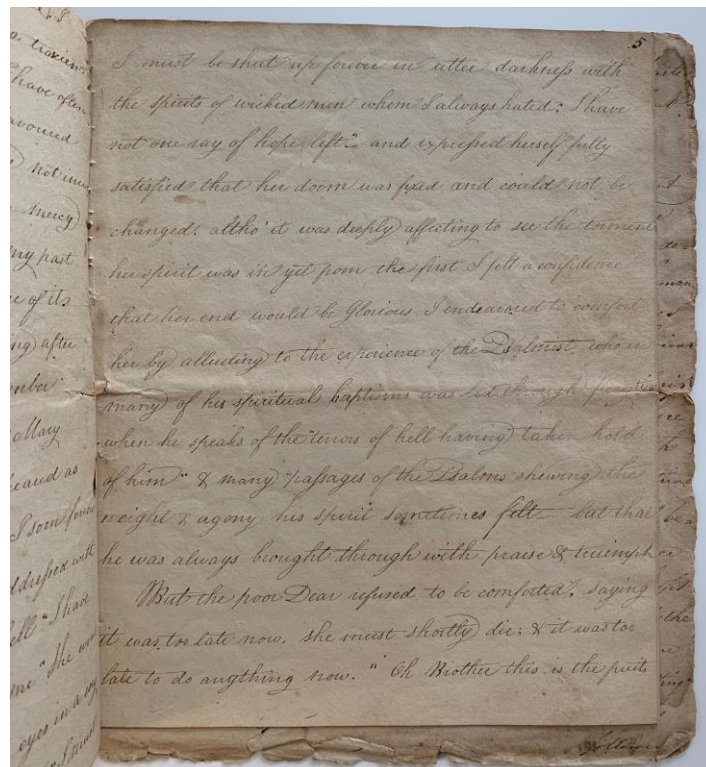 5
I must be shut up forever in utter darkness with
the spirits of wicked men whom I always hated: I have
not one ray of hope left" and expressed herself fully
satisfied that her doom was fixed and could not be
changed. altho' it was deeply affecting to see the torment
her spirit was in yet from the first I felt a confidence
that her end would be Glorious I endeavored to comfort
her by alluding to the experience of the Psalmist who in
many of his spiritual baptisms was led through
when he speaks of the "terrors of hell having taken hold
of him" & many passages of the Psalms shewing the
weight & agony his spirit sometimes felt - but that
he was always brought through with praise & triumph
But the poor Dear refused to be comforted, saying
it was too late now. she must shortly die; & it was too
late to do anything now. " Oh Brother this is the
have often
avoured
not
mercy
my past
e of its
after
Mary
as
I soon found
ddressed with
ell "I have
me" She
eyes in a